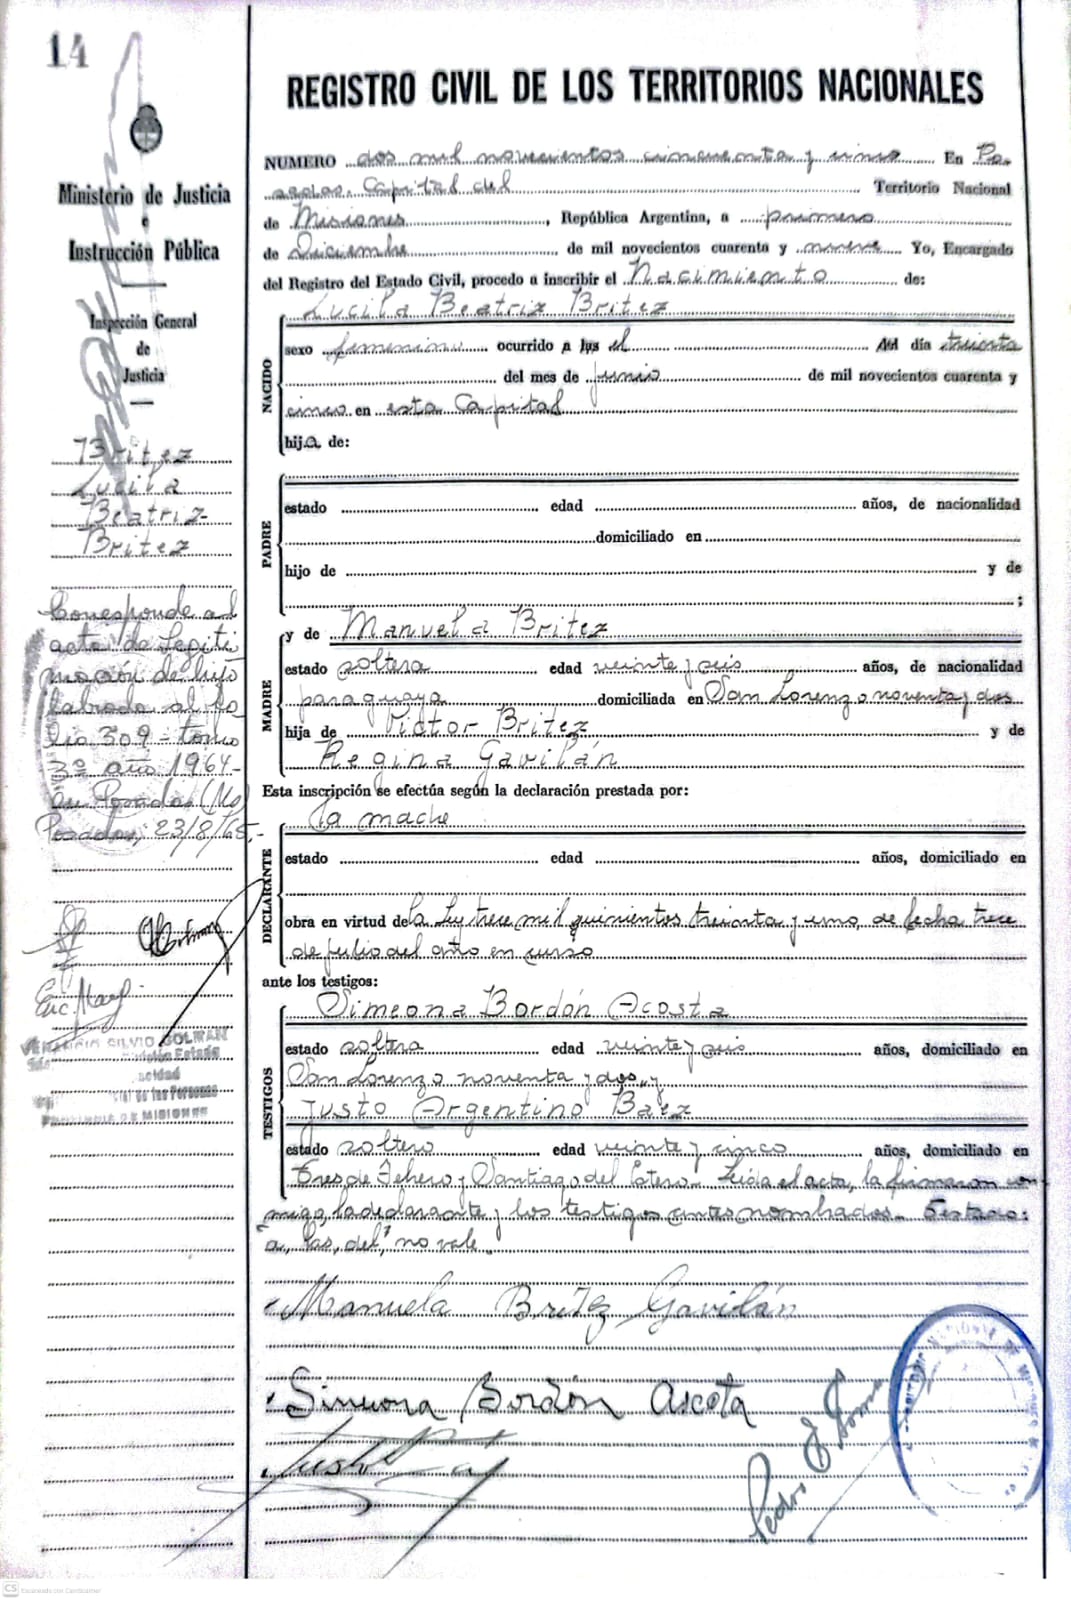 14
Ministerio de Justicia
e
Instrucción Pública
Inspección General
de
Justicia
Britez
Lucila
Beatriz
Britez
Corresponde al
acta de Legiti
mación de hijo
labrada al fo
lio 309 - tomo
3º año 1964-
en Posadas (Ms)
Posadas, 23/8/65.-
Enc.
VENANCIO SILVIO GOLMAN
PROVINCIA DE MISIONES
REGISTRO CIVIL DE LOS TERRITORIOS NACIONALES
NUMERO dos mil novecientos cincuenta y uno En Po-
sadas, Capital del Territorio Nacional
de Misiones, República Argentina, a primero
de Diciembre de mil novecientos cuarenta y nueve Yo, Encargado
del Registro del Estado Civil, procedo a inscribir el Nacimiento de:
NACIDO
Lucila Beatriz Britez
sexo femenino ocurrido a las el del día treinta
del mes de junio de mil novecientos cuarenta y
cinco en esta Capital
hija de:
PADRE
estado edad años, de nacionalidad
domiciliado en
hijo de y de
;
MADRE
y de Manuela Britez
estado soltera edad veinte y seis años, de nacionalidad
paraguaya domiciliada en San Lorenzo noventa y dos
hija de Victor Britez y de
Regina Gavilán
Esta inscripción se efectúa según la declaración prestada por:
DECLARANTE
la madre
estado edad años, domiciliado en
obra en virtud de la Ley trece mil quinientos treinta y uno, de fecha trece
de julio del año en curso
ante los testigos:
TESTIGOS
Simeona Bordón Acosta
estado soltera edad veinte y seis años, domiciliado en
San Lorenzo noventa y dos, y
Justo Argentino Baez
estado soltero edad veinte y cinco años, domiciliado en
Tres de Febrero y Santiago del Estero - Leida el acta, la firmaron con-
migo, la declarante y los testigos antes nombrados - Testado:
"a, las, del," no vale.
Manuela Britez Gavilán
Simeona Bordón Acosta
Justo
Pedro
CS Escaneado con CamScanner